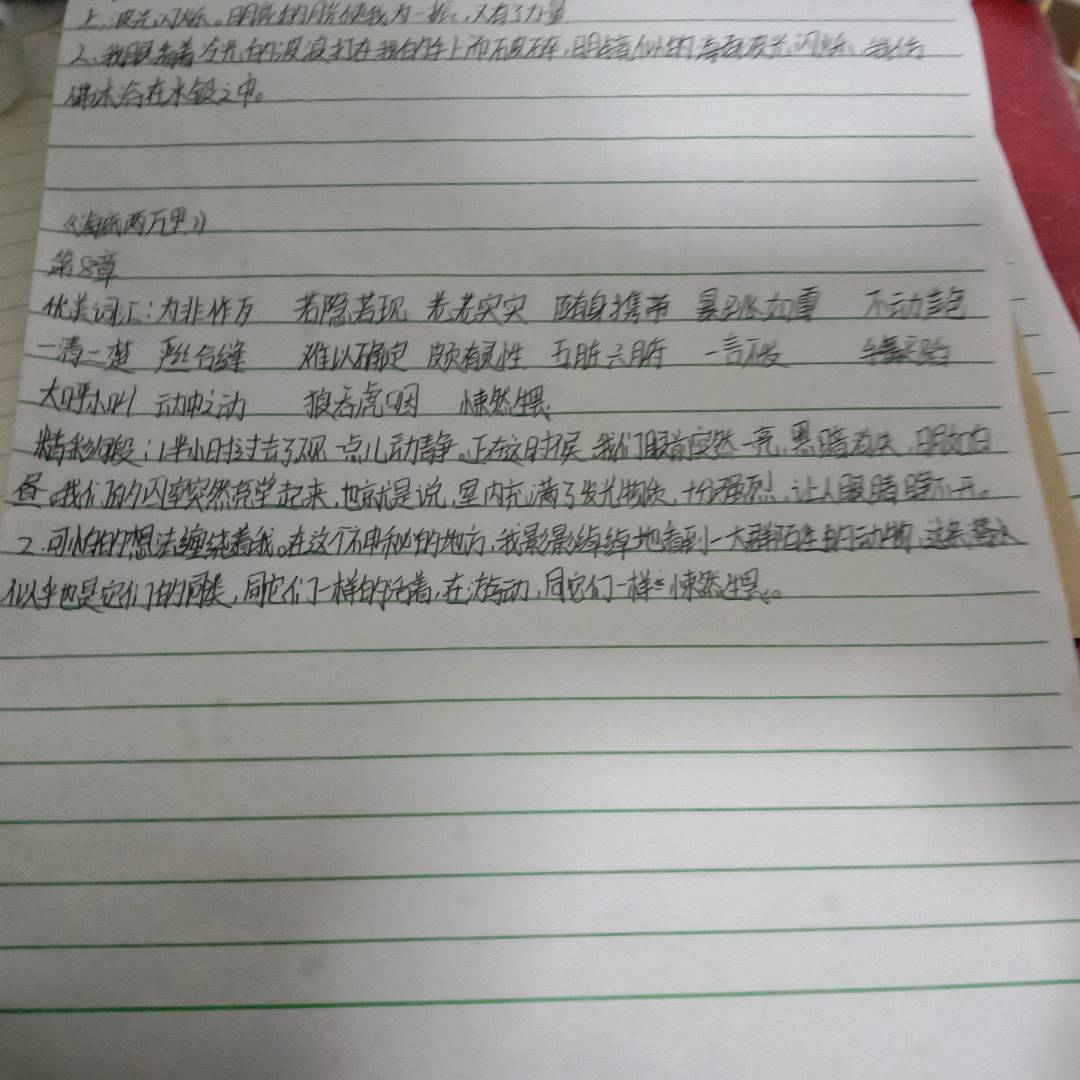 上,波光闪烁。明亮的月光使我为一振,又有了力量
2.我眼看着今光的波浪打在我的手上而不见碎,明镜似的海面发光闪烁
佛沐浴在水银之中。
《海底两万里》
第8章
优美词汇:为非作歹 若隐若现 老老实实 随身携带 暴跳如雷 不动声色
一清二楚 严丝合缝 难以确定 颇有灵性 五脏六腑 一言不发
大呼小叫 动中之动 狼吞虎咽 悚然生畏
精彩段:1.半小时过去了,一点儿动静。正在这时候,我们眼前突然一亮,黑暗消失,明如白
昼。我们的囚室突然亮堂起来,也就是说,室内充满了发光物质,十分强烈,让人眼睛睁不开。
2.可怕的想法缠绕着我。在这个神秘的地方,我影影绰绰地看到一大群陌生的动物,这条潜水
似乎也是它们的同类,同它们一样的活着,在游动,同它们一样悚然生畏。